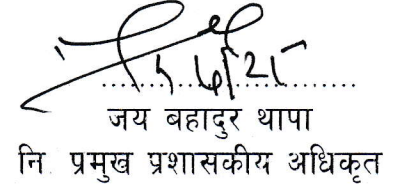 जय बहादुर थापा
नि प्रमुख प्रशासकीय अधिकृत